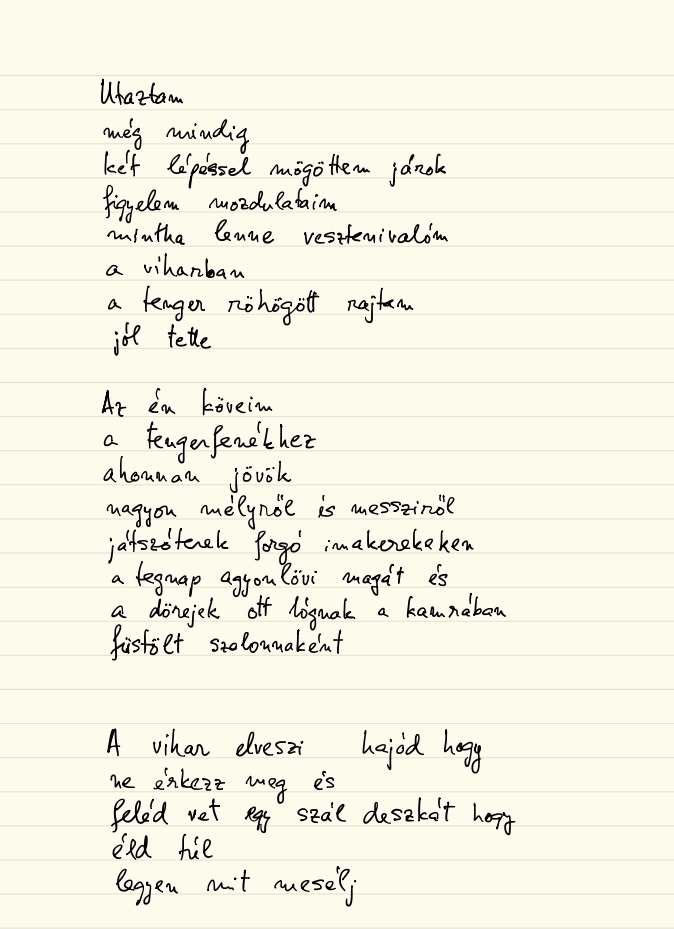 Utaztam
még mindig
két lépéssel mögöttem járok
figyelem mozdulataim
mintha lenne vesztenivalóm
a viharban
a tenger röhögött rajtam
jól tette
Az én köveim
a tengerfenékhez
ahonnan jövök
nagyon mélyről is messziről
játszóterek forgó imakerekeken
a tegnap agyonlövi magát és
a dörejek ott lógnak a kamrában
füstölt szalonnaként
A vihar elveszi hajód hogy
ne érkezz meg és
feléd vet egy szál deszkát hogy
éld túl
legyen mit mesélj